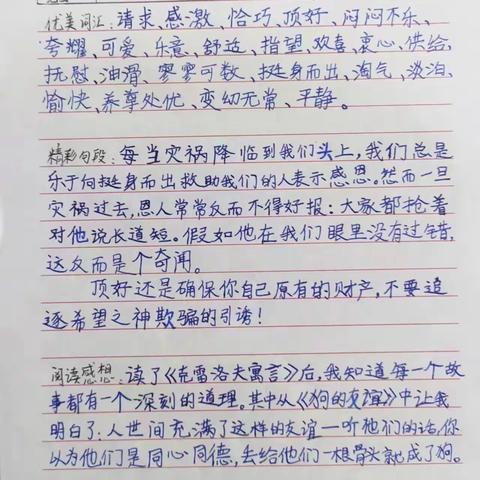 优美词汇：请求、感激、恰巧、顶好、闷闷不乐、
夸耀、可爱、乐意、舒适、指望、欢喜、衷心、供给、
抚慰、油滑、寥寥可数、挺身而出、淘气、淡泊、
愉快、养尊处优、变幻无常、平静。
精彩句段：每当灾祸降临到我们头上，我们总是
乐于向挺身而出救助我们的人表示感恩。然而一旦
灾祸过去，恩人常常反而不得好报：大家都抢着
对他说长道短。假如他在我们眼里没有过错，
这反而是个奇闻。
顶好还是确保你自己原有的财产，不要追
逐希望之神欺骗的引诱！
阅读感想：读了《克雷洛夫寓言》后，我知道每一个故
事都有一个深刻的道理。其中从《狗的友谊》中让我
明白了：人世间充满了这样的友谊—听他们的话，你
以为他们是同心同德，丢给他们一根骨头就成了狗。